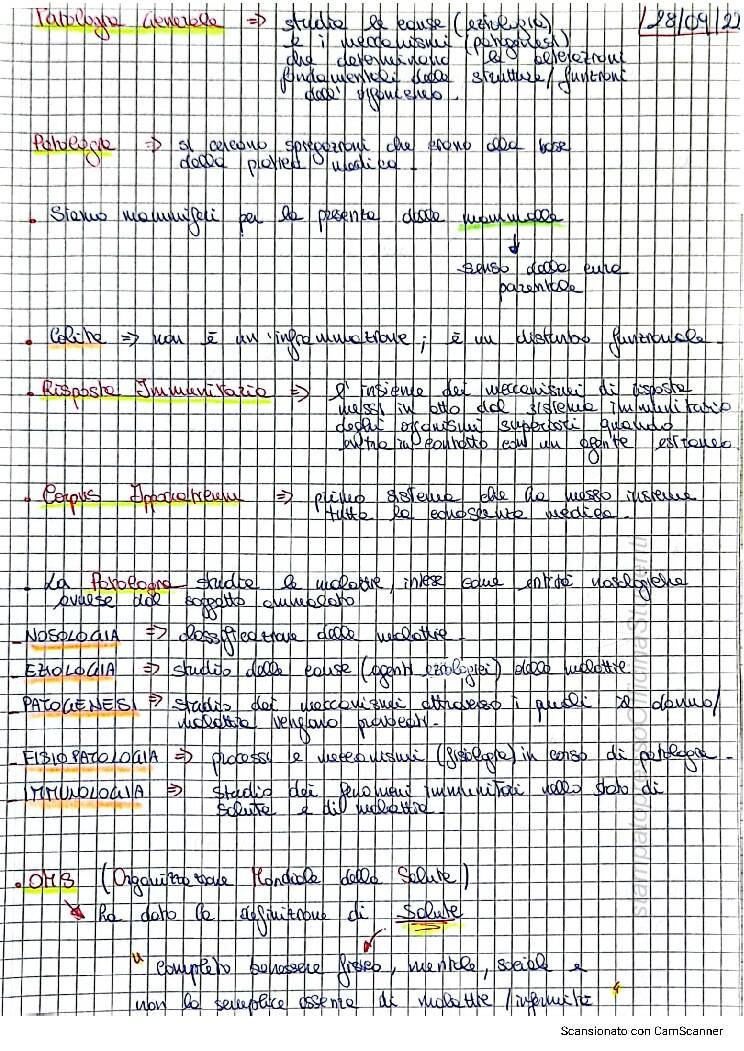 Patologia Generale => studia le cause (eziologia) 28/09/22
e i meccanismi (patogenesi)
che determinano le alterazioni
fondamentali delle strutture/funzioni
dell'organismo.
Patologia => si cercano spiegazioni che erano alla base
della pratica medica.
. Siamo mammiferi per la presenza delle mammelle
senso delle cure
parentale
. Colite => non è un'infiammazione; è un disturbo funzionale.
. Risposta Immunitaria => l'insieme dei meccanismi di risposta
messi in atto dal sistema immunitario
degli organismi superiori quando
entra in contatto con un agente estraneo.
. Corpus Ippocraticum => primo sistema che ha messo insieme
tutta la conoscenza medica.
. La Patologia studia le malattie, intese come entità nosologiche
avulse dal soggetto ammalato
- NOSOLOGIA => classificazione delle malattie.
- EZIOLOGIA => studio delle cause (agenti eziologici) delle malattie
- PATOGENESI => studio dei meccanismi attraverso i quali il danno/
malattia vengano provocati.
- FISIOPATOLOGIA => processi e meccanismi (fisiologia) in corso di patologia.
- IMMUNOLOGIA => studio dei fenomeni immunitari nello stato di
salute e di malattie.
. OMS (Organizzazione Mondiale della Salute)
ha dato la definizione di Salute
" completo benessere fisico, mentale, sociale e
non la semplice assenza di malattie/infermità "
Scansionato con CamScanner